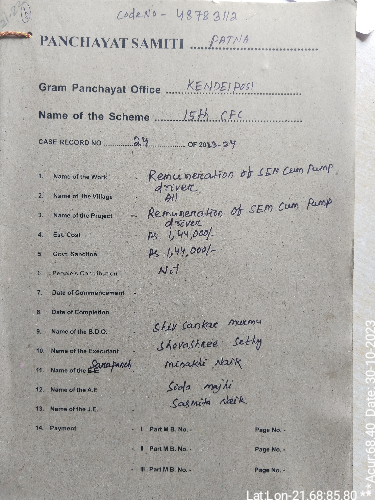 Code No - 48783112
PANCHAYAT SAMITI PATNA
Gram Panchayat Office KENDEIPOSI
Name of the Scheme 15th CFC
CASE RECORD NO 24 OF 2023-24
1. Name of the Work - Remuneration of SEM Cum Pump driver
2. Name of the Village - All
3. Name of the Project - Remuneration of SEM Cum Pump driver
4. Est. Cost - Rs 1,44,000/-
5. Govt. Sanction - Rs 1,44,000/-
6. People's Contribution - Nil
7. Date of Commencement -
8. Date of Completion
9. Name of the B.D.O. - Shiv Sankar Murmu
10. Name of the Executant - Shovashree Sethy
11. Name of the Sarapanch - Minakhi Naik
12. Name of the A.E - Sida Majhi
13. Name of the J.E. - Sasmita Naik
14. Payment - I Part M B. No. - Page No. -
- II Part M B. No. - Page No. -
- III Part M B. No. - Page No. -
Lat Lon-21.68:85.80
**Acur:68.40 Date: 30-10-2023